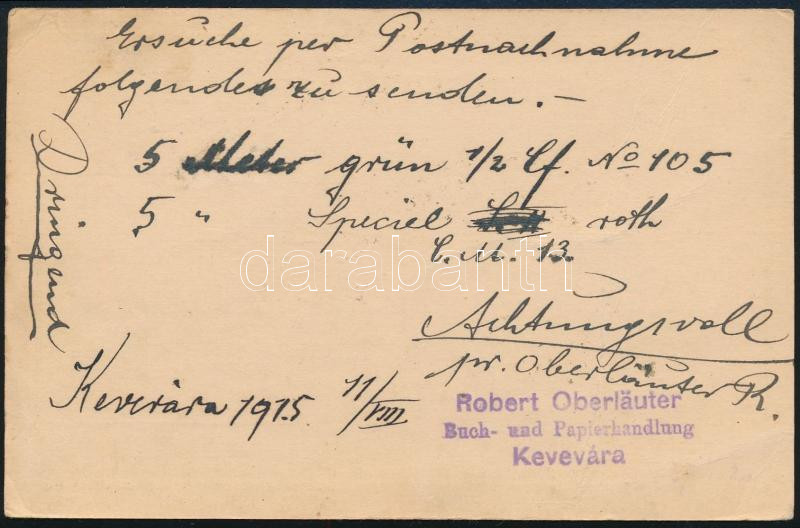 Ersuche per Postnachnahme
folgendes zu senden. –
Dringend
5 Meter grün 1/2 Cf. No 105
5 " Speciel roth
C. M. 13.
Achtungsvoll
pr. Oberläuter R.
Kevevára 1915 11/VIII
Robert Oberläuter
Buch- und Papierhandlung
Kevevára
darabanth